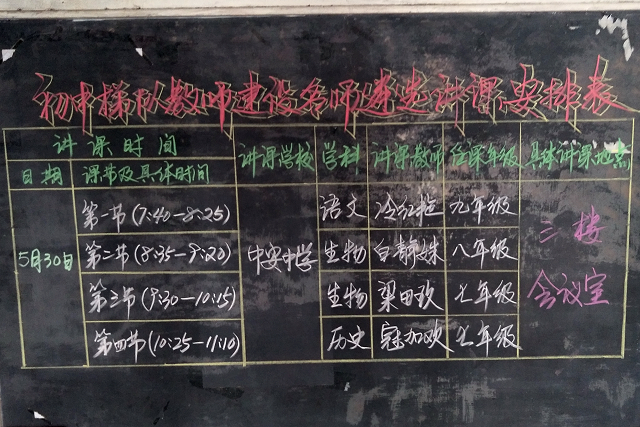 初中梯队教师建设名师遴选讲课安排表
讲课时间 讲课学校 学科 讲课教师 授课年级 具体讲课地点
日期 课节及具体时间
5月30日 中安中学 三楼会议室
第一节(7:40-8:25) 语文 冷红 九年级
第二节(8:35-9:20) 生物 白静姝 八年级
第三节(9:30-10:15) 生物 梁田玫 七年级
第四节(10:25-11:10) 历史 寇加欢 七年级